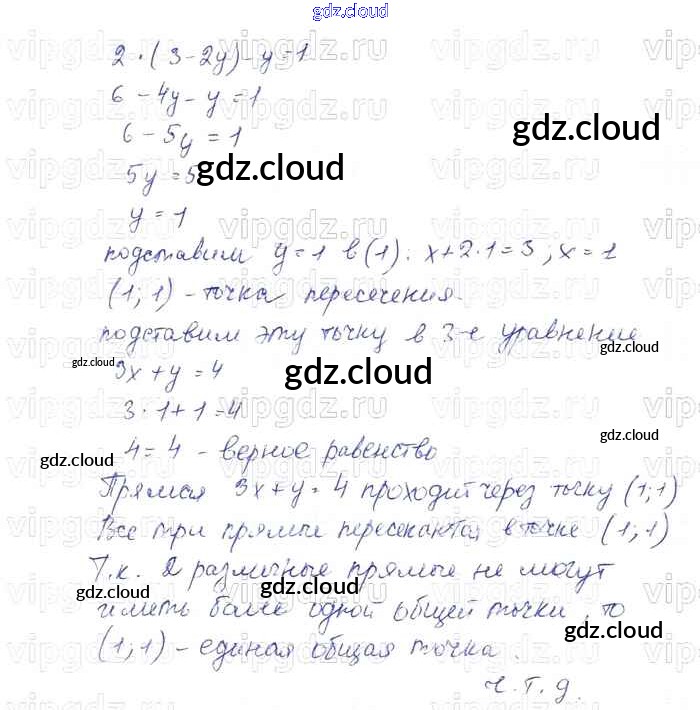 gdz.cloud
2·(3-2y)-y=1
6-4y-y=1
6-5y=1
5y=5
y=1
подставим y=1 в (1): x+2·1=3; x=1
(1; 1) - точка пересечения.
подставим эту точку в 3-е уравнение
3x+y=4
3·1+1=4
4=4 - верное равенство
Прямая 3x+y=4 проходит через точку (1;1)
Все три прямые пересекаются в точке (1;1)
Т.к. 2 различные прямые не могут
иметь более одной общей точки, то
(1;1) - единая общая точка.
ч.т.д.
gdz.cloud
gdz.cloud
gdz.cloud
gdz.cloud
gdz.cloud
gdz.cloud
gdz.cloud
gdz.cloud
gdz.cloud
vipgdz.ru